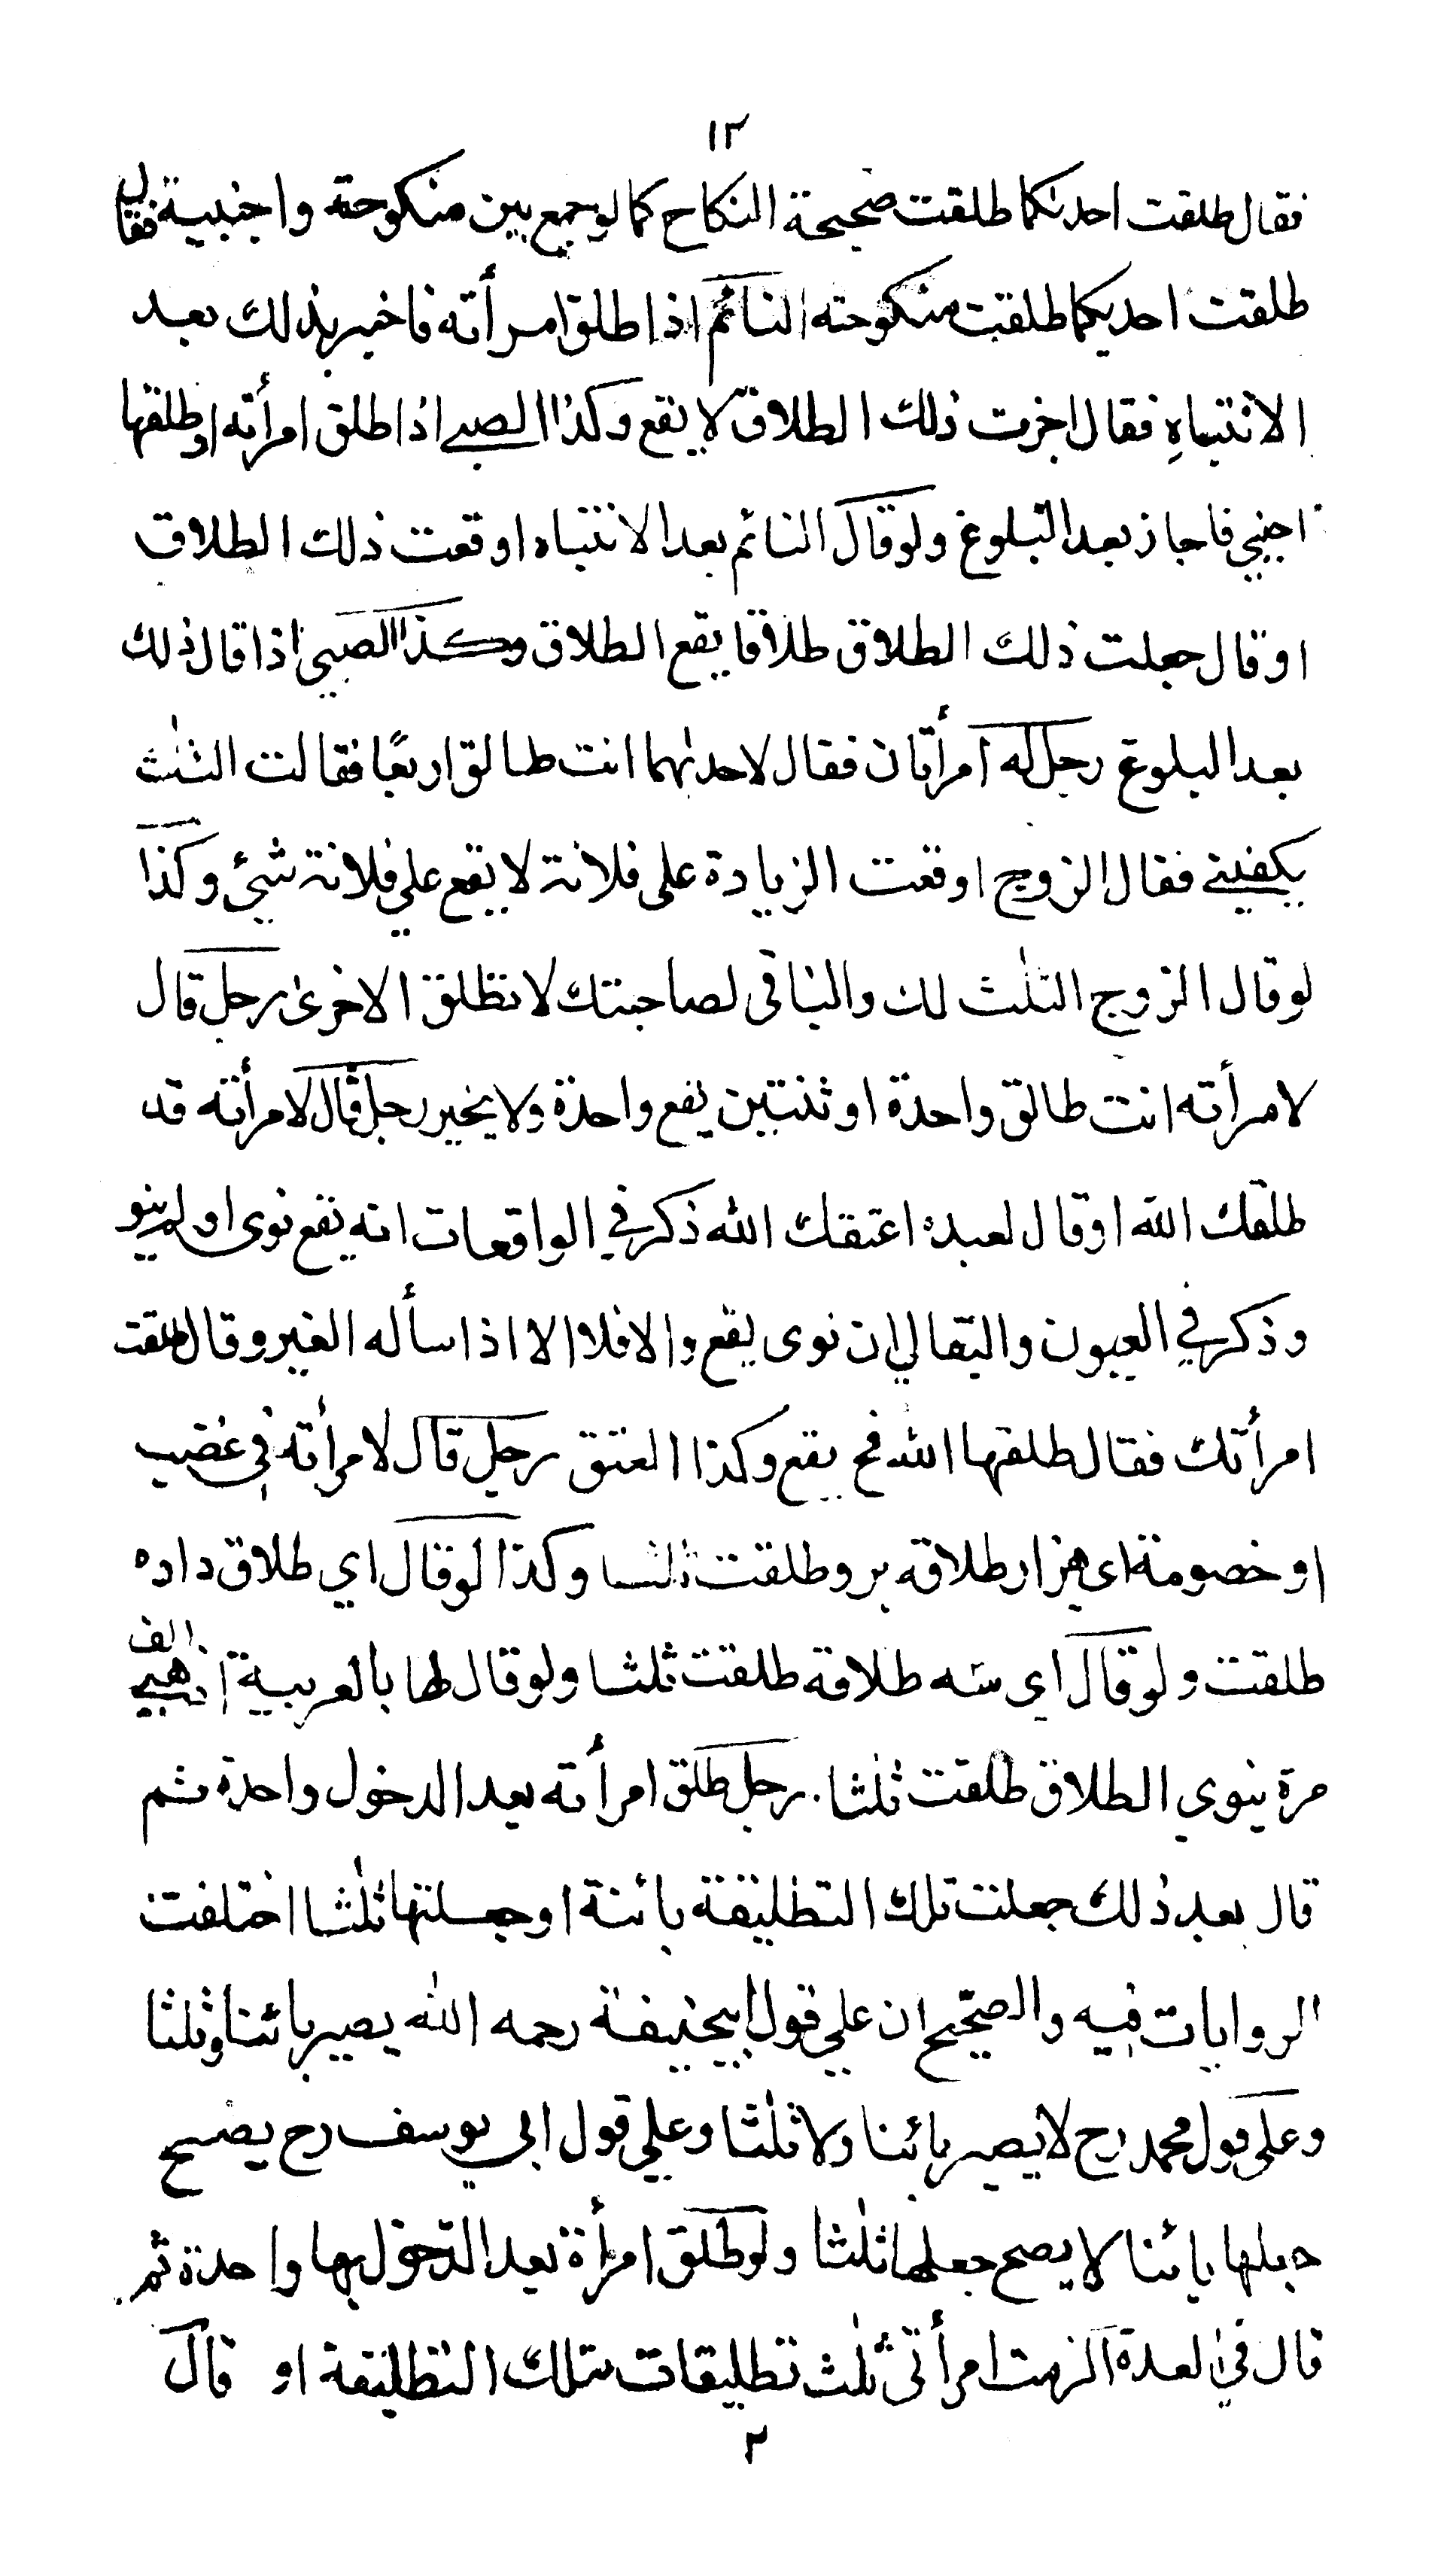 ١٣
فقال طلقت احدىكما طلقت صحيحة النكاح كما لو جمع بين منكوحة واجنبية فقال
طلقت احديكما طلقت منكوحته النائم اذا طلق امرأته فاخبر بذلك بعد
الانتباهِ فقال اجزت ذلك الطلاق لا يقع وكذا الصبي اذا طلق امرأته او طلقها
اجنبي فاجاز بعد البلوغ ولو قال النائم بعد الانتباه اوقعت ذلك الطلاق
او قال جعلت ذلك الطلاق طلاقا يقع الطلاق وكذا الصبي اذا قال ذلك
بعد البلوغ رجل له امرأتان فقال لاحدٰىهما انت طالق اربعًا فقالت الثلٰث
يكفيني فقال الزوج اوقعت الزيادة على فلانة لا يقع علي فلانة شيئ وكذا
لو قال الزوج الثلٰث لك والباقى لصاحبتك لا تطلق الاخرىٰ رجل قال
لامرأته انت طالق واحدة او ثنتين يقع واحدة ولا يخير رجل قال لامرأته قد
طلقك الله او قال لعبده اعتقك الله ذكر في الواقعات انه يقع نوى او لم ينو
وذكر في العيون والبقالي ان نوى يقع والا فلا الا اذا سأله الغير وقال طلقت
امرأتك فقال طلقها الله فح يقع وكذا العتق رجل قال لامرأته في غضب
او خصومة اى هزار طلاقه برو طلقت ثلثا وكذا لو قال اي طلاق داده
طلقت ولو قال اى سه طلاقه طلقت ثلثا ولو قال لها بالعربية اذهبي الف
مرة ينوي الطلاق طلقت ثلٰثا. رجل طلق امرأته بعد الدخول واحدة ثم
قال بعد ذلك جعلت تلك التطليقة بائنة او جعلتها ثلٰثا اختلفت
الروايات فيه والصحيح ان علي قول ابيحنيفة رحمه الله يصير بائنا وثلثا
وعلى قول محمد رح لا يصير بائنا ولا ثلٰثا وعلي قول ابي يوسف رح يصح
جعلها بائنا لا يصح جعلها ثلٰثا ولو طلق امرأة بعد الدخول بها واحدة ثم
قال في العدة الزمت امرأتى ثلٰث تطليقات بتلك التطليقة او قال
٢